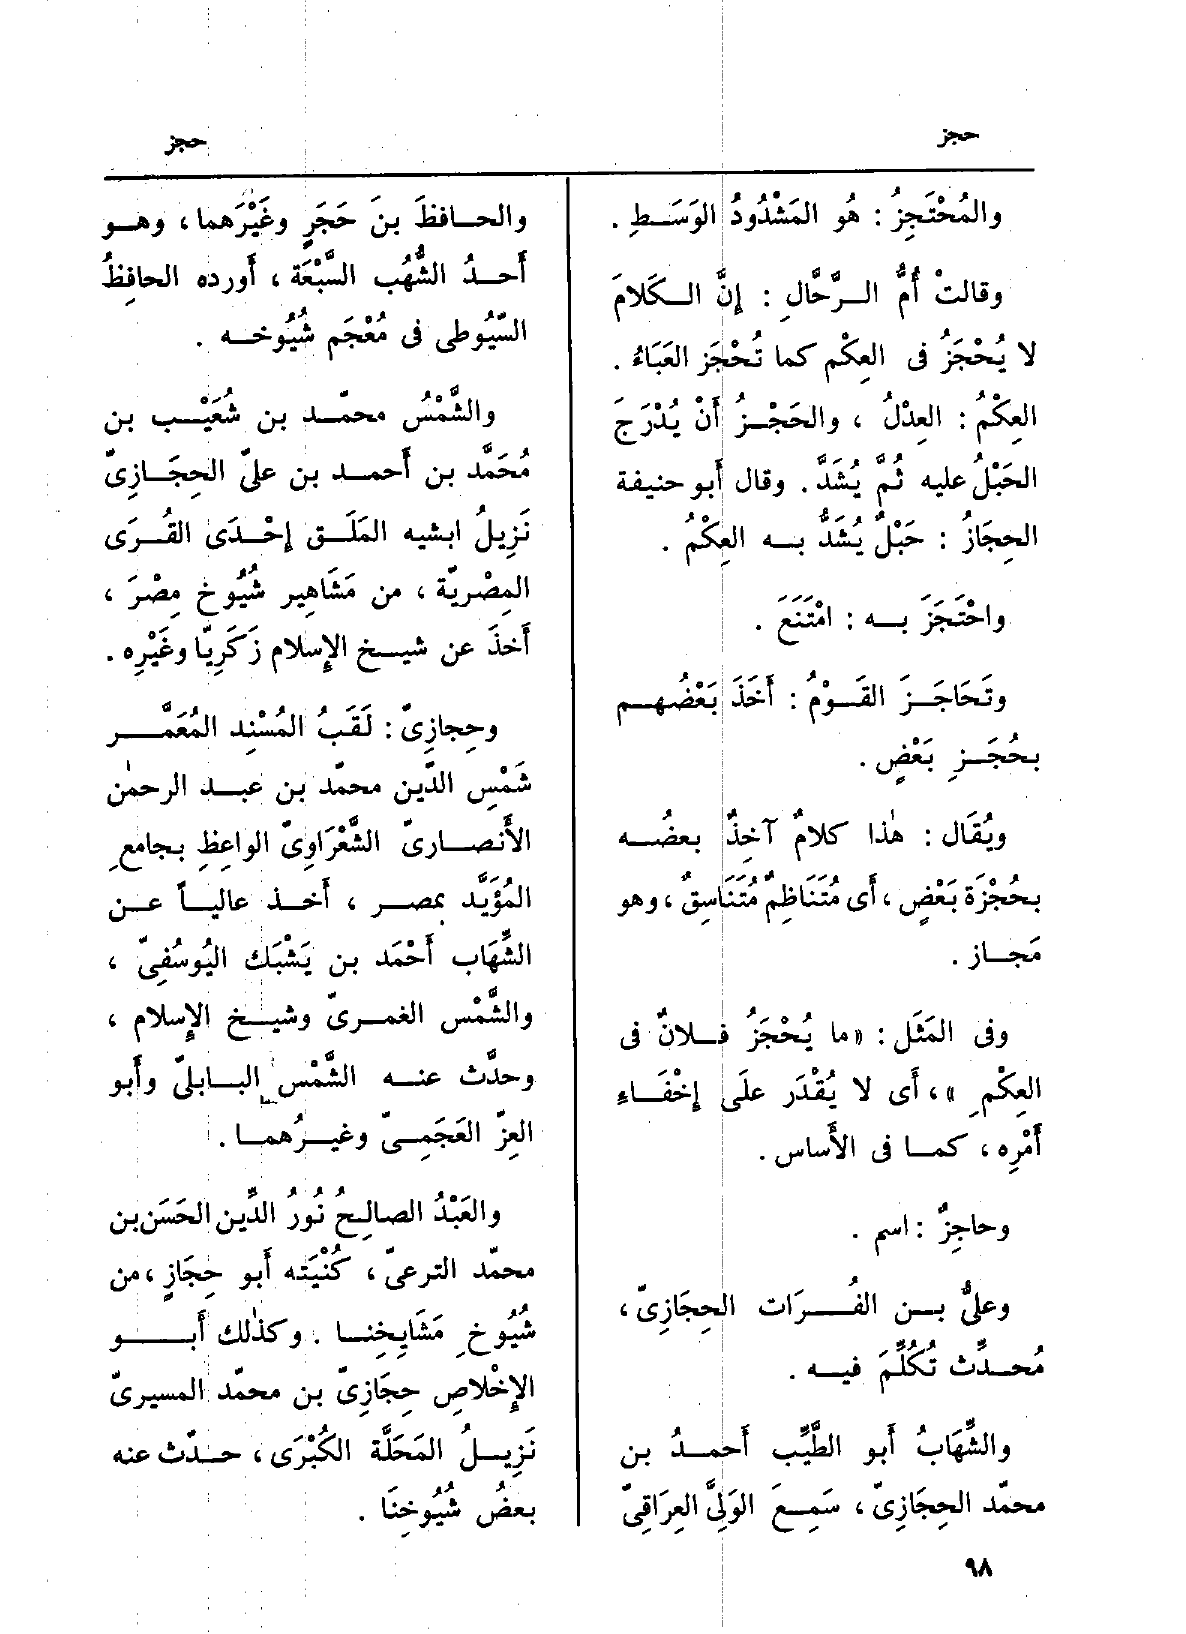 حجز
حجز
والمُحْتَجِزُ : هُو المَشْدُودُ الوَسَـطِ .
وقالتْ أُمُّ الـرَّحَّالِ : إِنَّ الـكَلامَ
لا يُحْجَزُ فى العِكْم كما تُحْجَز العَبَاءُ .
العِكْمُ : العِدْلُ ، والحَجْـزُ أَنْ يُدْرَجَ
الحَبْلُ عليه ثُمَّ يُشَدَّ . وقال أَبو حنيفة
الحِجَازُ : حَبْلٌ يُشَدُّ بـه العِكْمُ .
واحْتَجَزَ بـه : امْتَنَعَ .
وتَحَاجَـزَ القَـوْمُ : أَخَذَ بَعْضُهـم
بحُجَـزِ بَعْضٍ .
ويُقَال : هٰذا كلامٌ آخِذٌ بعضُـه
بحُجْزَة بَعْضٍ ، أَى مُتَنَاظِمٌ مُتَنَاسِقٌ ، وهو
مَجـاز .
وفى المَثَل : «ما يُحْجَزُ فـلانٌ فى
العِكْمِ » ، أَى لا يُقْدَر علَى إِخْفَـاءِ
أَمْرِه ، كمـا فى الأَساس .
وحاجِزٌ : اسم .
وعلىُّ بـن الفُـرَات الحِجَازِىّ ،
مُحـدِّث تُكُلِّمَ فيـه .
والشِّهَابُ أَبو الطَّيِّب أَحمـدُ بن
محمّد الحِجَازِىّ ، سَمِـعَ الوَلِىَّ العِرَاقِىّ
والحـافظَ بنَ حَجَرٍ وغَيْرَهما ، وهـو
أَحـدُ الشُّهُب السَّبْعَة ، أَورده الحافِظُ
السّيُوطى فى مُعْجَم شُيُوخـه .
والشَّمْسُ محمّـد بن شُعَيْـب بن
مُحَمَّد بن أَحمـد بن علىّ الحِجَـازِىّ
نَزِيلُ ابشيه المَلَـق إِحْـدَى القُـرَى
المِصْريّة ، من مَشَاهِير شُيُوخ مِصْرَ ،
أَخذَ عن شيـخ الإِسلام زَكَرِيّا وغَيْرِه .
وحِجازِىّ : لَقَبُ المُسْنِد المُعَمَّـر
شَمْسِ الدّين محمّد بن عبـد الرحمٰن
الأَنصـارىّ الشَّعْرَاوِىّ الواعِظِ بجامعِ
المُؤَيَّد بمصـر ، أَخـذ عاليـاً عـن
الشِّهَاب أَحْمَد بن يَشْبَك اليُوسُفِىّ ،
والشَّمْس الغمـرىّ وشيـخ الإِسلام ،
وحدَّث عنـه الشَّمْس البـابلىّ وأَبو
العِزّ العَجَمِـىّ وغيـرُهمـا .
والعَبْدُ الصالِـحُ نُورُ الدِّين الحَسَن بن
محمّد الترعىّ ، كُنْيَته أَبو حِجَازٍ ، من
شُيُوخِ مَشَايِخِنـا . وكذٰلك أَبـو
الإِخْلاصِ حِجَازِىّ بن محمّد المسيرىّ
نَزِيـلُ المَحَلَّة الكُبْرَى ، حـدّث عنه
بعضُ شُيُوخِنَا .
٩٨